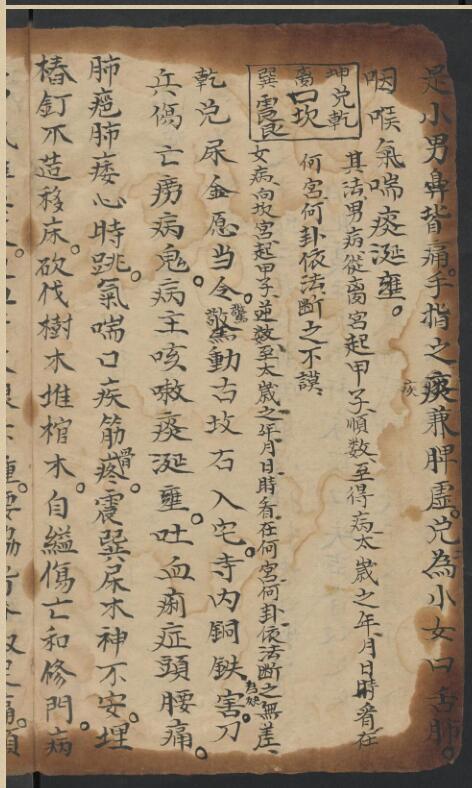 是小男鼻背痛。手指之痰兼脾虛。兌為小女口舌肺。
疾
咽喉氣喘痰涎壅。
其法男病從离宮起甲子順数至得病太歲之年月日時看在
何宮何卦依法断之不謨
坤兌乾
离口坎
巽震艮
女病向坎宮起甲子逆数至太歲之年月日時看在何宮何卦依法断之無差
乾兌屎金愿当令。驚動古坟石入宅。寺内銅鉄害。刀
兵傷亡癆病鬼。病主咳嗽痰涎壅。吐血痢症頭腰痛。
肺癰肺痿心時跳。氣喘口疾筋骨疼。震巽屎木神不安。埋
樁釘不造移床。砍伐樹木堆棺木。自縊傷亡和修門。病